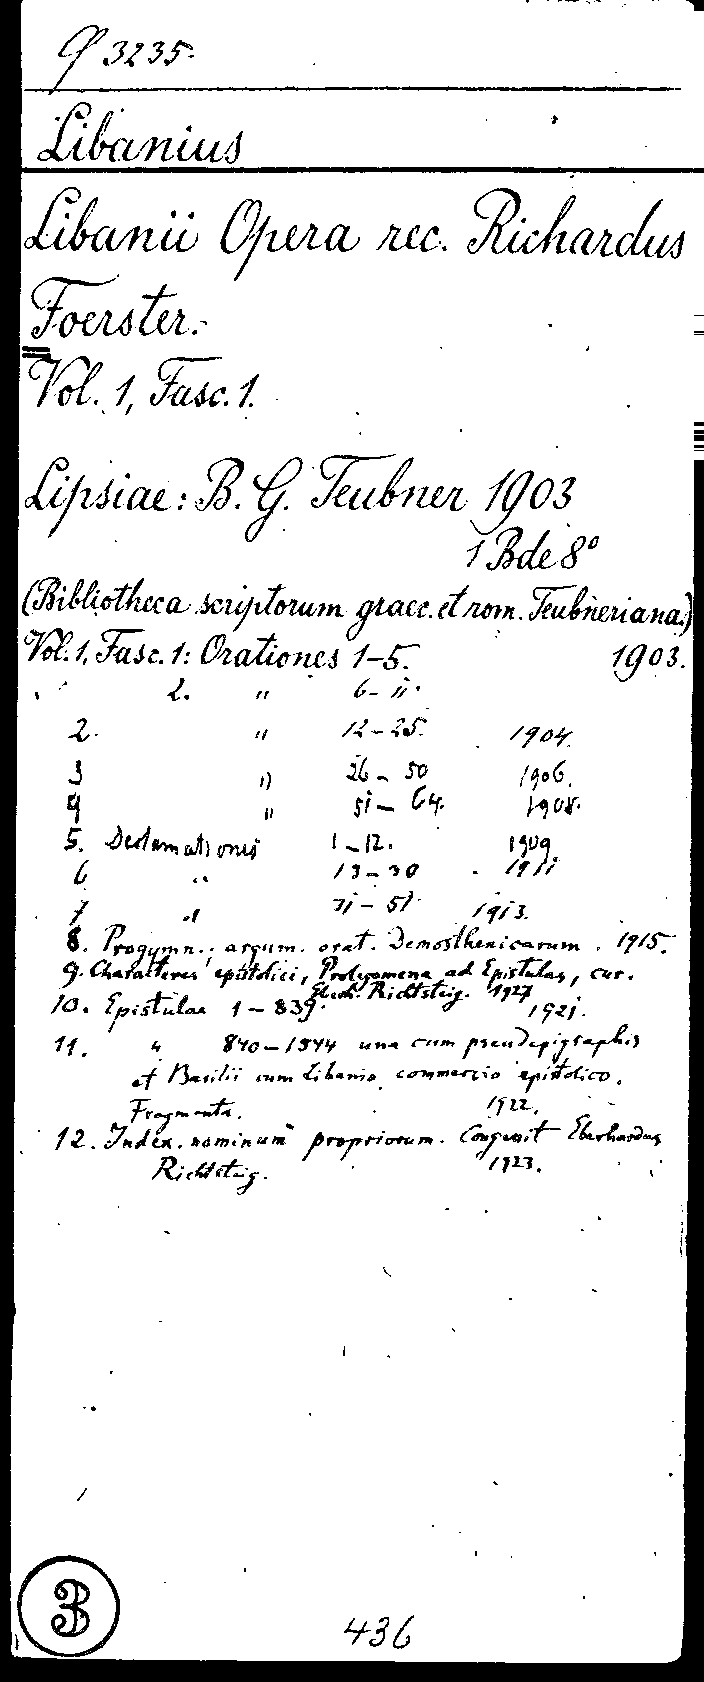 3235.
Libanius
Libanii Opera rec. Richardus
Foerster.
Vol. 1, Fasc. 1.
Lipsiae: B. G. Teubner 1903
1 Bde 8°
(Bibliotheca scriptorum graec. et rom. Teubneriana.)
Vol. 1, Fasc. 1: Orationes 1-5. 1903.
2. " 6-11.
2. " 12-25. 1904.
3 " 26-50 1906.
4 " 51-64. 1908.
5. Declamationes 1-12. 1909
6 " 13-30 1911
7 " 31-51 1913.
8. Progymn.; argum. orat. Demosthenicarum. 1915.
9. Characteres epistolici, Prolegomena ad Epistulas, cur.
Eberh. Richtsteig. 1927
10. Epistulae 1-839. 1921.
11. " 840-1544 una cum pseudepigraphis
et Basilii cum Libanio commercio epistolico.
Fragmenta. 1922.
12. Index nominum propriorum. Congessit Eberhardus
Richtsteig. 1923.
3
436